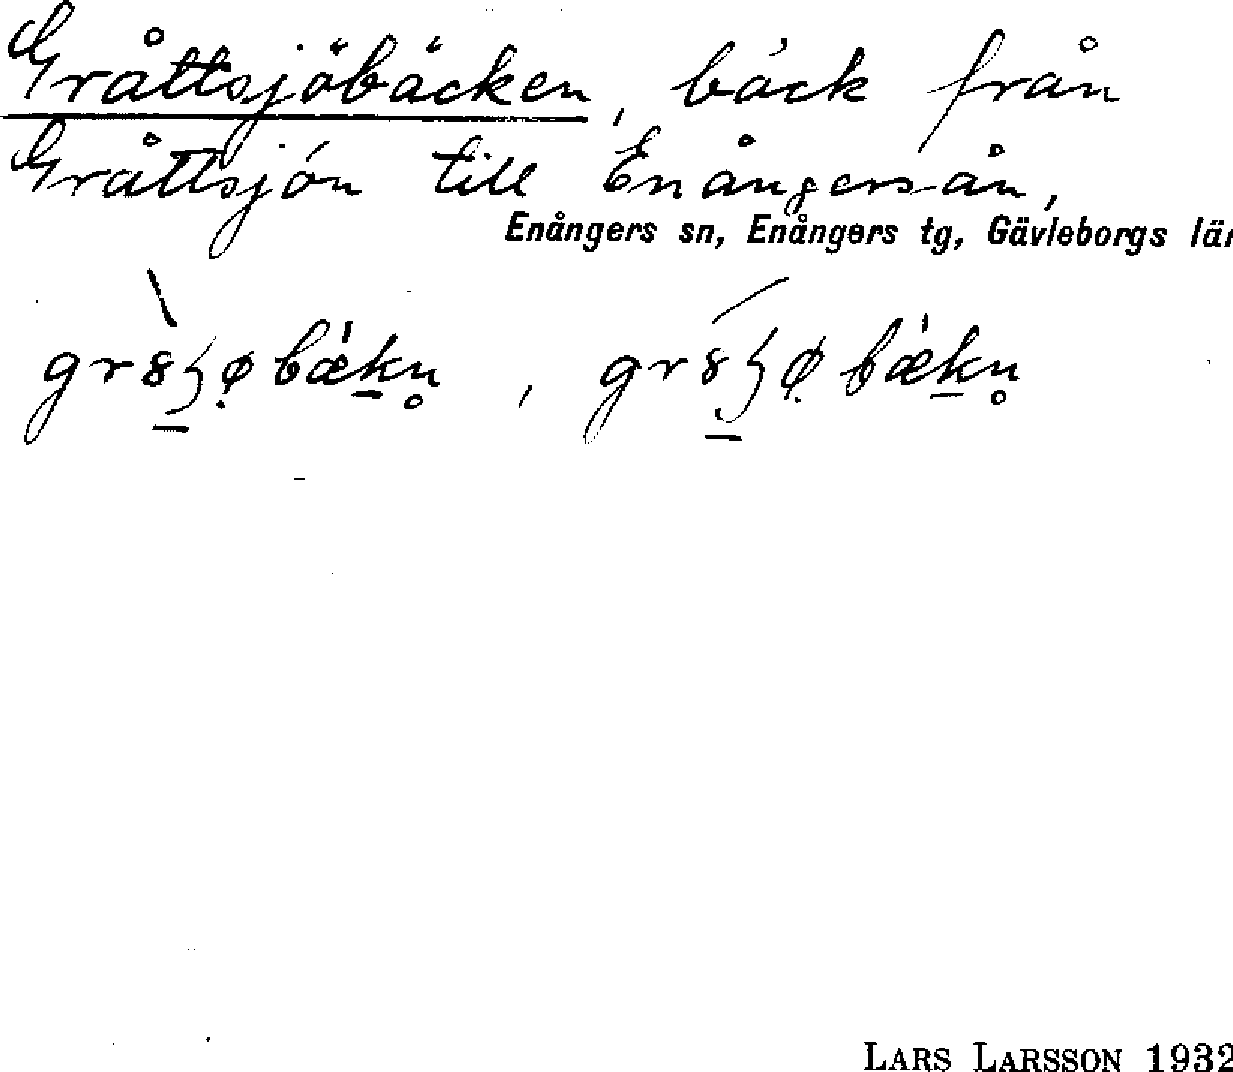 Gråttsjöbäcken, bäck från
Gråttsjön till Enångersån,
Enångers sn, Enångers tg, Gävleborgs län
LARS LARSSON 1932